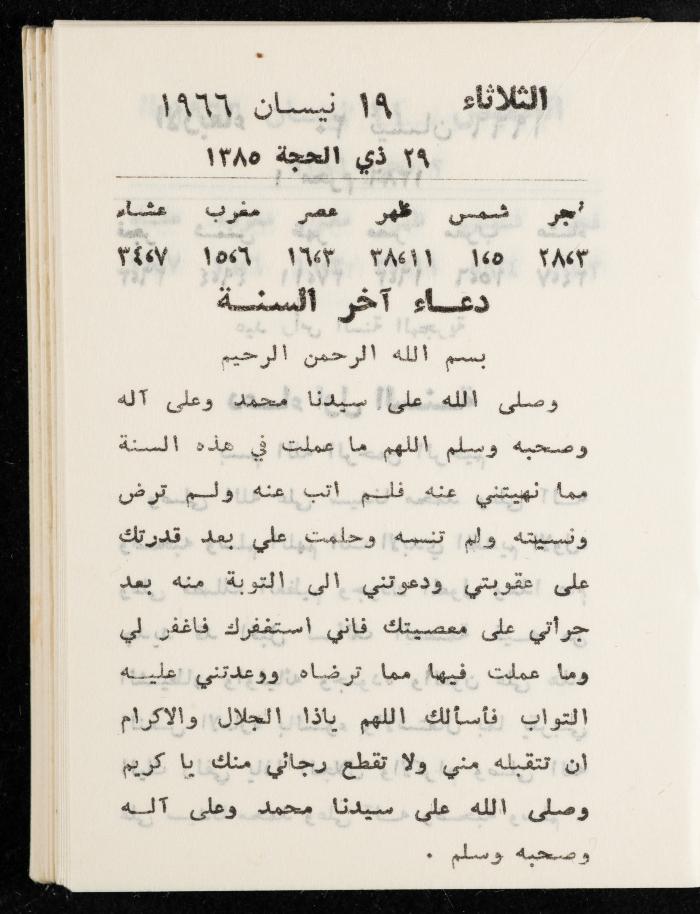 الثلاثاء ١٩ نيسان ١٩٦٦
٢٩ ذي الحجة ١٣٨٥
فجر شمس ظهر عصر مغرب عشاء
٢٨،٣ ١،٥ ٣٨،١١ ١٦،٣ ١٥،٦ ٣٤،٧
دعـاء آخر السنـة
بسم الله الرحمن الرحيم
وصلى الله على سيدنا محمد وعلى آله
وصحبه وسلم اللهم ما عملت في هذه السنة
مما نهيتني عنه فلـم اتب عنه ولـم ترض
ونسيته ولم تنسه وحلمت علي بعد قدرتك
على عقوبتي ودعوتني الى التوبة منه بعد
جرأتي على معصيتك فاني استغفرك فاغفر لي
وما عملت فيها مما ترضاه ووعدتني عليـه
التواب فأسألك اللهم ياذا الجلال والاكرام
ان تتقبله مني ولا تقطع رجائي منك يا كريم
وصلى الله على سيدنا محمد وعلى آلـه
وصحبه وسلم .